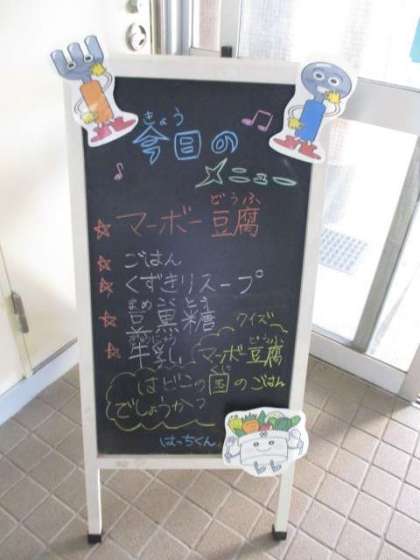 きょう
今日の
メニュー
どうふ
マーボー豆腐
ごはん
くずきりスープ
まめこくとう
豆黒糖
牛乳
クイズ
どうふ
マーボー豆腐
くに
はどこの国のごはん
でしょうか?
はっちくん